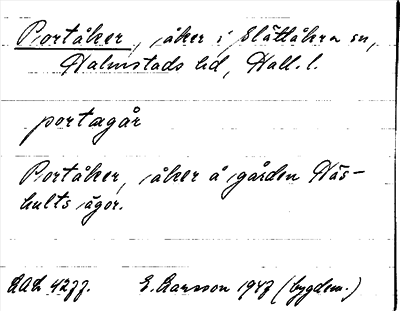 Portåker, åker i Slättåkra sn,
Halmstads hd, Hall. l.
portagår
Portåker, åker å gården Häs-
hults ägor.
DAL 4277. E. Larsson 1947 (bygdem.)